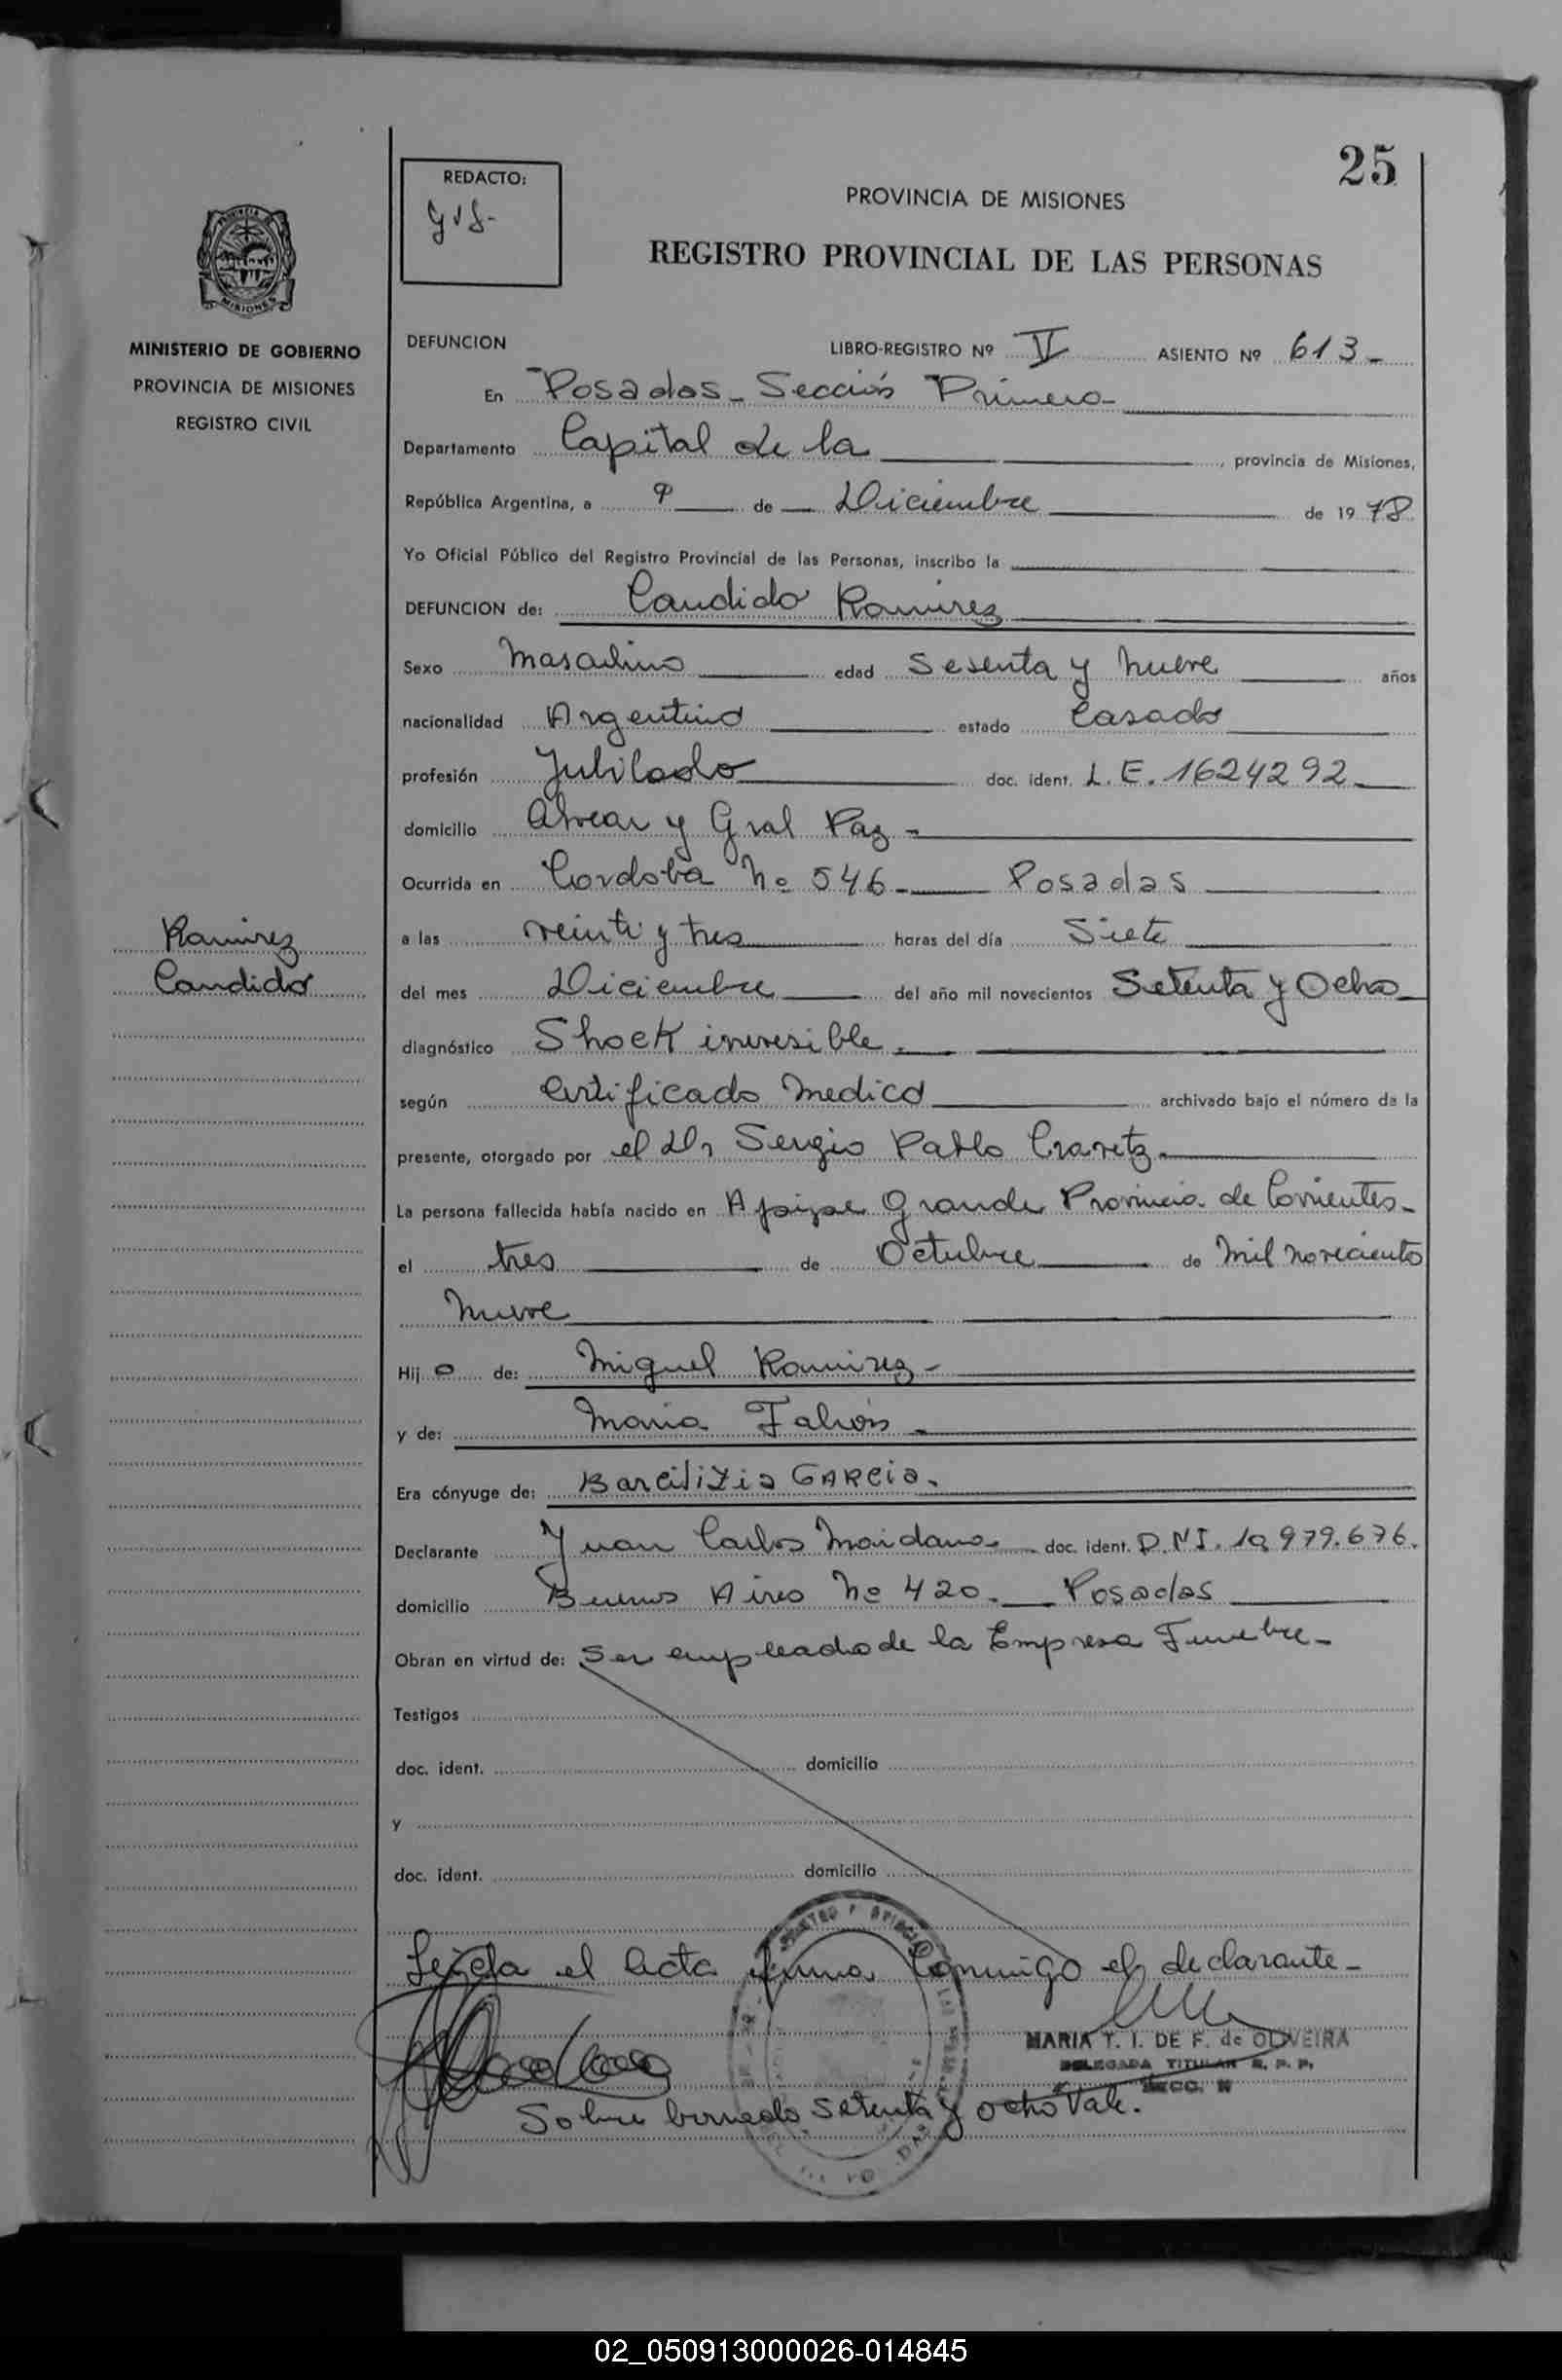 25
REDACTO:
PROVINCIA DE MISIONES
REGISTRO PROVINCIAL DE LAS PERSONAS
MISIONES
MINISTERIO DE GOBIERNO
PROVINCIA DE MISIONES
REGISTRO CIVIL
DEFUNCION LIBRO-REGISTRO Nº V ASIENTO Nº 613-
En Posadas - Sección Primera
Departamento Capital de la , provincia de Misiones,
República Argentina, a 9 de Diciembre de 1978
Yo Oficial Público del Registro Provincial de las Personas, inscribo la
DEFUNCION de: Candido Ramirez
Sexo Masculino edad Sesenta y nueve años
nacionalidad Argentino estado Casado
profesión Jubilado doc. ident. L.E. 1624292
domicilio Alvear y Gral Paz -
Ocurrida en Cordoba Nº 546 - Posadas
Ramirez
Candido
a las veinti y tres horas del día Siete
del mes Diciembre del año mil novecientos Setenta y Ocho
diagnóstico Shock inversible.
según Certificado Medico archivado bajo el número de la
presente, otorgado por el Dr Sergio Pablo
La persona fallecida había nacido en Grande Provincia de Corrientes -
el tres de Octubre de Mil novecientos
nueve
Hijo de: Miguel Ramirez -
y de: Maria
Era cónyuge de: GARCIA.
Declarante Juan Carlos Maidana doc. ident. D.N.I. 10.979.676.
domicilio Buenos Aires Nº 420. Posadas
Obran en virtud de: Ser empleado de la Empresa Funebre -
Testigos
doc. ident. domicilio
y
doc. ident. domicilio
Leida el acta firma conmigo el declarante -
MARIA T. I. DE F. de OLIVEIRA
DELEGADA TITULAR R. P. P.
SECC.
Sobre borrado setenta y ocho Vale.
02_050913000026-014845